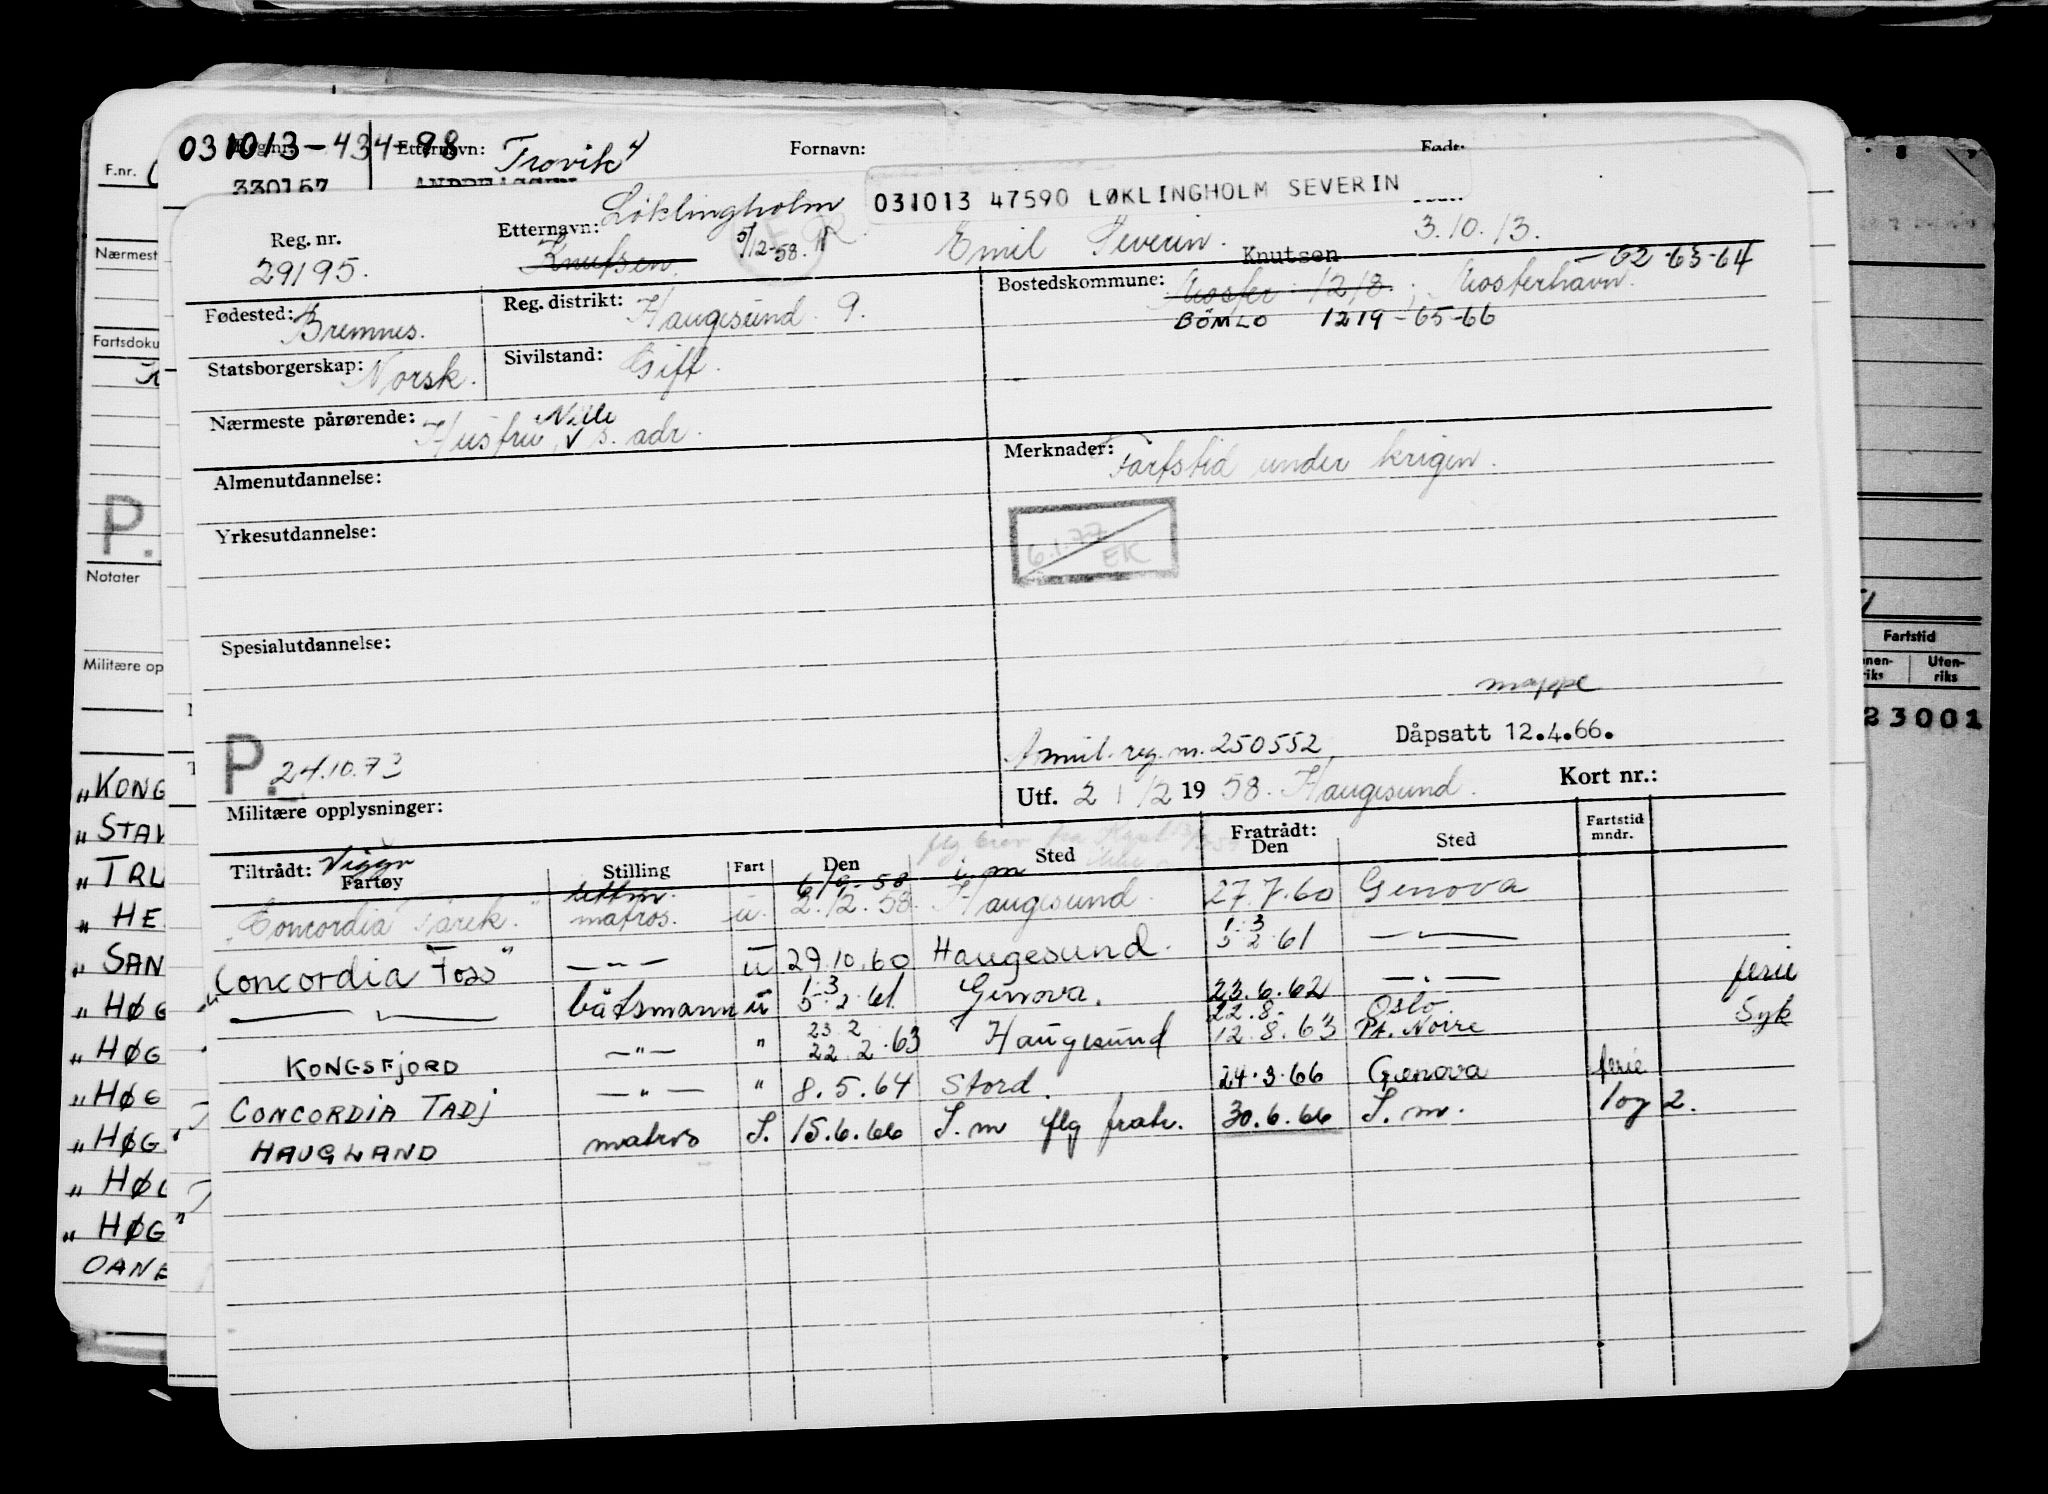 031013-434-98 Etternavn: Trovik Fornavn: Født:
330157
031013 47590 LØKLINGHOLM SEVERIN
Reg. nr. Etternavn: Løklingholm
29195. Knutsen 5/12-58. Emil Severin. Knutsen 3.10.13.
Fødested: Bremnes. Reg. distrikt: Haugesund 9. Bostedskommune: Moster 1218; Mosterhavn. -62-63-64
BÖMLO 1219-65-66
Statsborgerskap: Norsk. Sivilstand: Gift.
Nærmeste pårørende: Husfru Nille s. adr.
Almenutdannelse: Merknader: Fartstid under krigen.
Yrkesutdannelse: 6.1.77 EK
Spesialutdannelse:
mappe
P. 24.10.73 Anmil. reg. nr. 250552 Dåpsatt 12.4.66.
Militære opplysninger: Utf. 2 / 12 19 58. Haugesund. Kort nr.:
Tiltrådt: Viggo Fartøy Stilling Fart Den Sted Fratrådt: Den Sted Fartstid mndr.
"Concordia Tarek." lettm. matros. u. 6/9-58 2.12.58. i.m Haugesund. 27.7.60 Genova
"Concordia Foss" — " — u 29.10.60 Haugesund. 1.3 5 2.61 — " —
— " — båtsmann u 1.3 5.2.61 Genova. 23.6.62 — " — ferie
KONGSFJORD — " — " 23 2 22.2.63 Haugesund 22.8. 12.8.63 Oslo Pt. Noire Syk
CONCORDIA TADJ — " — " 8.5.64 Stord. 24.3.66 Genova ferie
HAUGLAND matros S. 15.6.66 S.m flg fratr. 30.6.66 S.m. 1 og 2.
F.nr.
Nærmest
Fartsdoku
P.
Notater
Militære op
"KONG
"STAV
"TRL
"HE
"SAN
"HØG
"HØG
"HØG
"HØG
"HØG
"HØG"
DANE
Fartstid
Innen-riks Uten-riks
23001